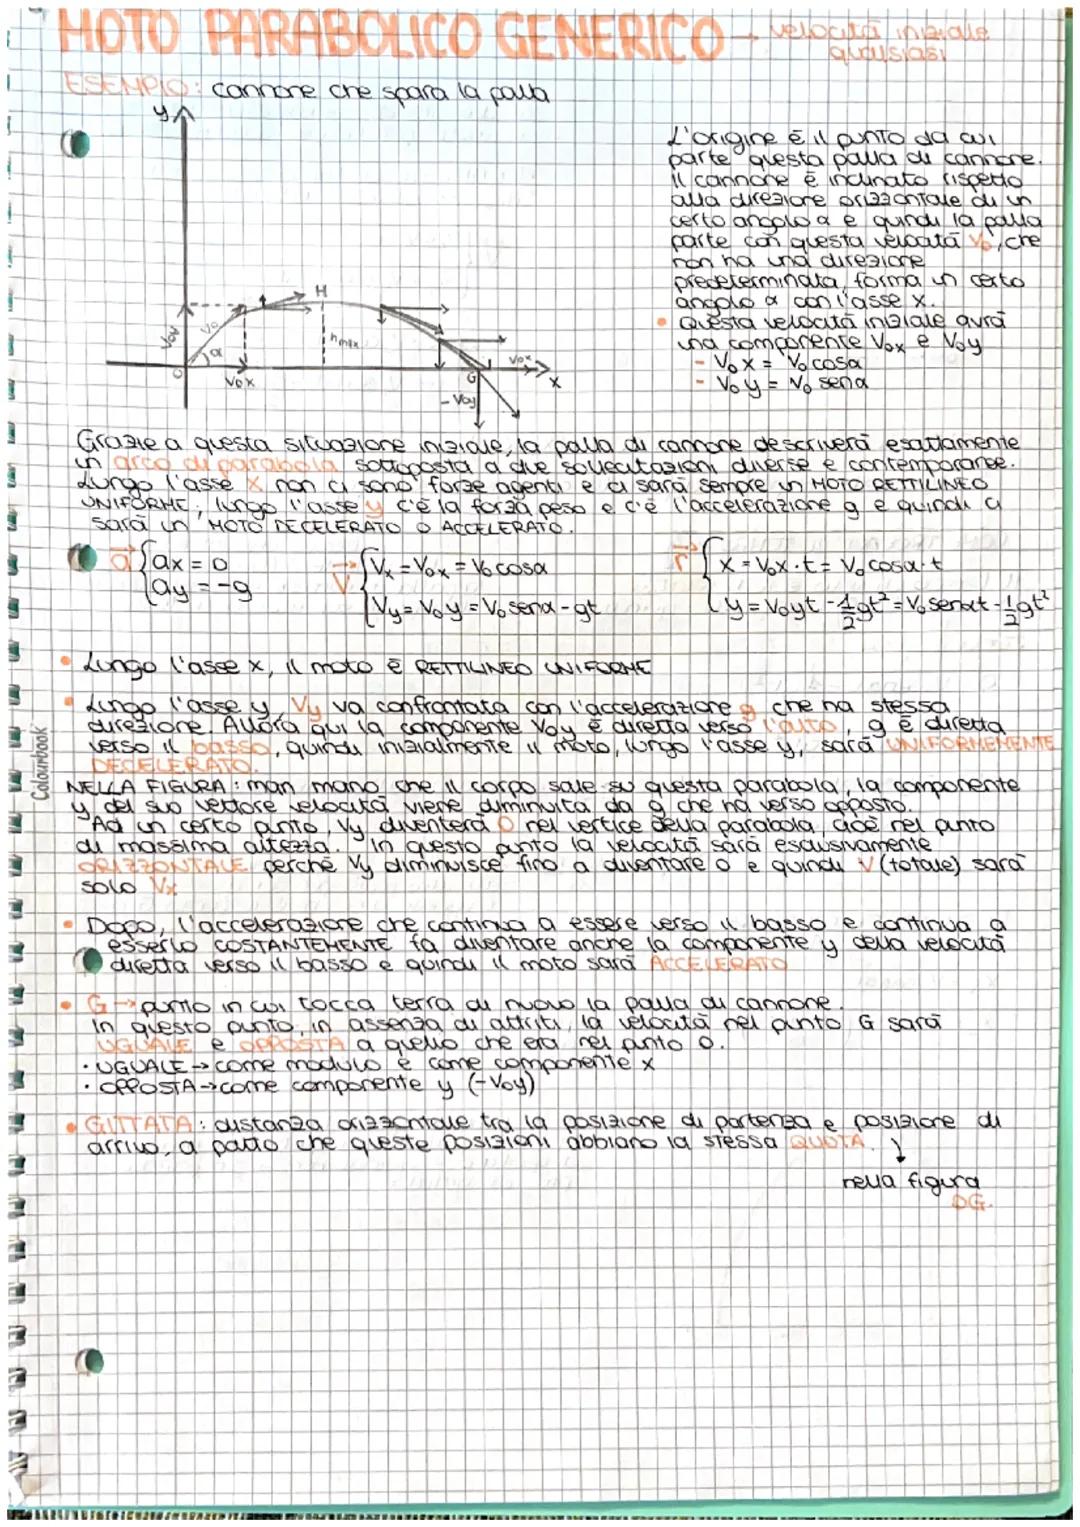 MOTO PARABOLICO GENERICO → velocità iniziale qualsiasi
ESEMPIO: cannone che spara la palla
y
H
Voy
Vo
α
hmax
O
Vox
G
Vox
x
- Voy
L'origine è il punto da cui
parte questa palla di cannone.
Il cannone è inclinato rispetto
alla direzione orizzontale di un
certo angolo α e quindi la palla
parte con questa velocità Vo, che
non ha una direzione
predeterminata, forma un certo
angolo α con l'asse x.
• Questa velocità iniziale avrà
una componente Vox e Voy
- Vox = Vo cosα
- Voy = Vo senα
Grazie a questa situazione iniziale, la palla di cannone descriverà esattamente
un arco di parabola sottoposta a due sollecitazioni diverse e contemporanee.
Lungo l'asse x non ci sono forze agenti e ci sarà sempre un MOTO RETTILINEO
UNIFORME; lungo l'asse y c'è la forza peso e c'è l'accelerazione g e quindi ci
sarà un MOTO DECELERATO O ACCELERATO.
a { ax = 0
ay = -g
V { Vx = Vox = Vo cosα
Vy = Voy = Vo senα - gt
r { x = Vox·t = Vo cosα·t
y = Voyt - 1/2 gt² = Vo senαt - 1/2 gt²
• Lungo l'asse x, il moto è RETTILINEO UNIFORME
• Lungo l'asse y, Vy va confrontata con l'accelerazione g che ha stessa
direzione. Allora qui la componente Voy è diretta verso l'alto, g è diretta
verso il basso, quindi inizialmente il moto, lungo l'asse y, sarà UNIFORMEMENTE
DECELERATO.
NELLA FIGURA: man mano che il corpo sale su questa parabola, la componente
y del suo vettore velocità viene diminuita da g che ha verso opposto.
Ad un certo punto, Vy diventerà 0 nel vertice della parabola, cioè nel punto
di massima altezza. In questo punto la velocità sarà esclusivamente
ORIZZONTALE perché Vy diminuisce fino a diventare 0 e quindi V (totale) sarà
solo Vx
• Dopo, l'accelerazione che continua a essere verso il basso e continua a
esserlo COSTANTEMENTE fa diventare anche la componente y della velocità
diretta verso il basso e quindi il moto sarà ACCELERATO
• G → punto in cui tocca terra di nuovo la palla di cannone.
In questo punto, in assenza di attriti, la velocità nel punto G sarà
UGUALE e OPPOSTA a quello che era nel punto O.
· UGUALE → come modulo e come componente x
· OPPOSTA → come componente y (-Voy)
• GITTATA: distanza orizzontale tra la posizione di partenza e posizione di
arrivo, a patto che queste posizioni abbiano la stessa QUOTA.
↓
nella figura
OG.
Colourbook